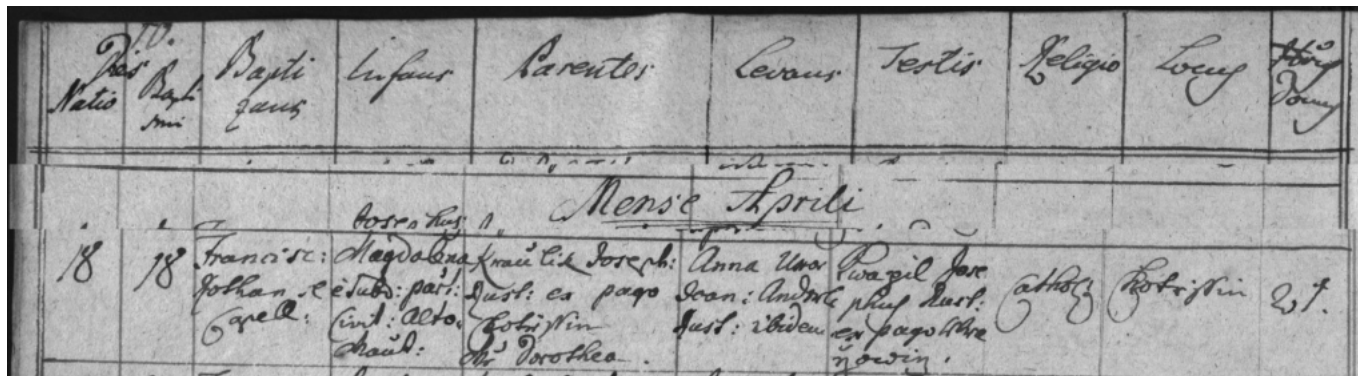 Dies
Natio Bapti
smi
Bapti
zans
Infans
Parentes
Levans
Testis
Religio
Locus
Domus
Mense Aprili
Josephus
18
18
Francisc:
Capell:
Magdalena
è Subd: part:
Civit: Alto-
Maut:
Kraulik Joseph:
Rust: ex pago
Chotiessin
Dorothea.
Anna Uxor
Joan:
Rust: ibidem
Kwapil Jose
phus Rust:
ex pago
Cathol:
Chotiessin